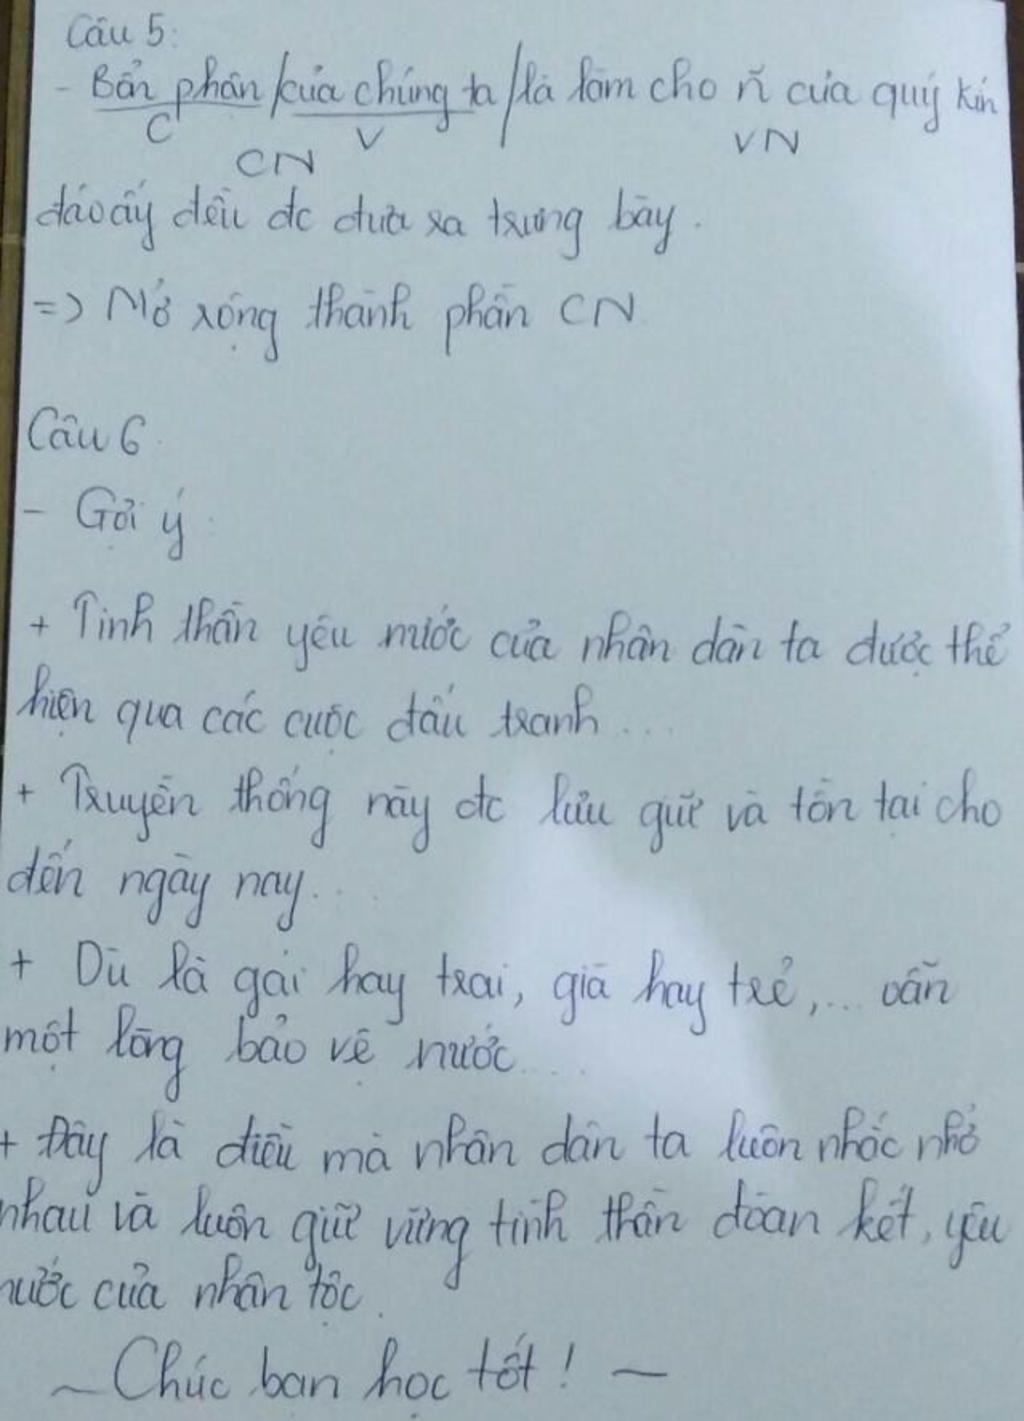 Câu 5:
- Bổn phận / của chúng ta / là làm cho ñ của quý kín
C V
CN VN
đáo ấy đều đc đưa ra trưng bày.
=> Mở rộng thành phần CN
Câu 6
- Gợi ý:
+ Tinh thần yêu nước của nhân dân ta được thể
hiện qua các cuộc đấu tranh ...
+ Truyền thống này đc lưu giữ và tồn tại cho
đến ngày nay...
+ Dù là gái hay trai, già hay trẻ,... vẫn
một lòng bảo vệ nước....
+ Đây là điều mà nhân dân ta luôn nhắc nhở
nhau và luôn giữ vững tinh thần đoàn kết, yêu
nước của nhân tộc.
~ Chúc bạn học tốt! ~